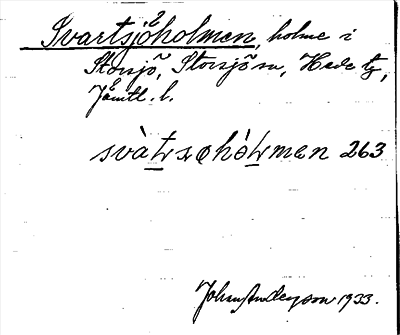 Svartsjöholmen, holme i
Storsjö, Storsjö sn, Hede tg,
Jämtl. l.
svàtsøhòmen 263
Johan Anderson 1933.